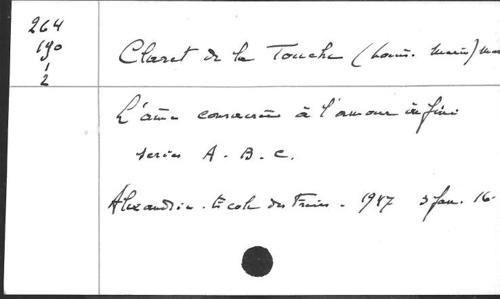 264
190
1
2
Claret de la Touche (Louise. Marie)
L'âme consacrée à l'amour infini
series A. B. C.
Alexandrie. Ecole des Frères. 1947 3 fasc. 16